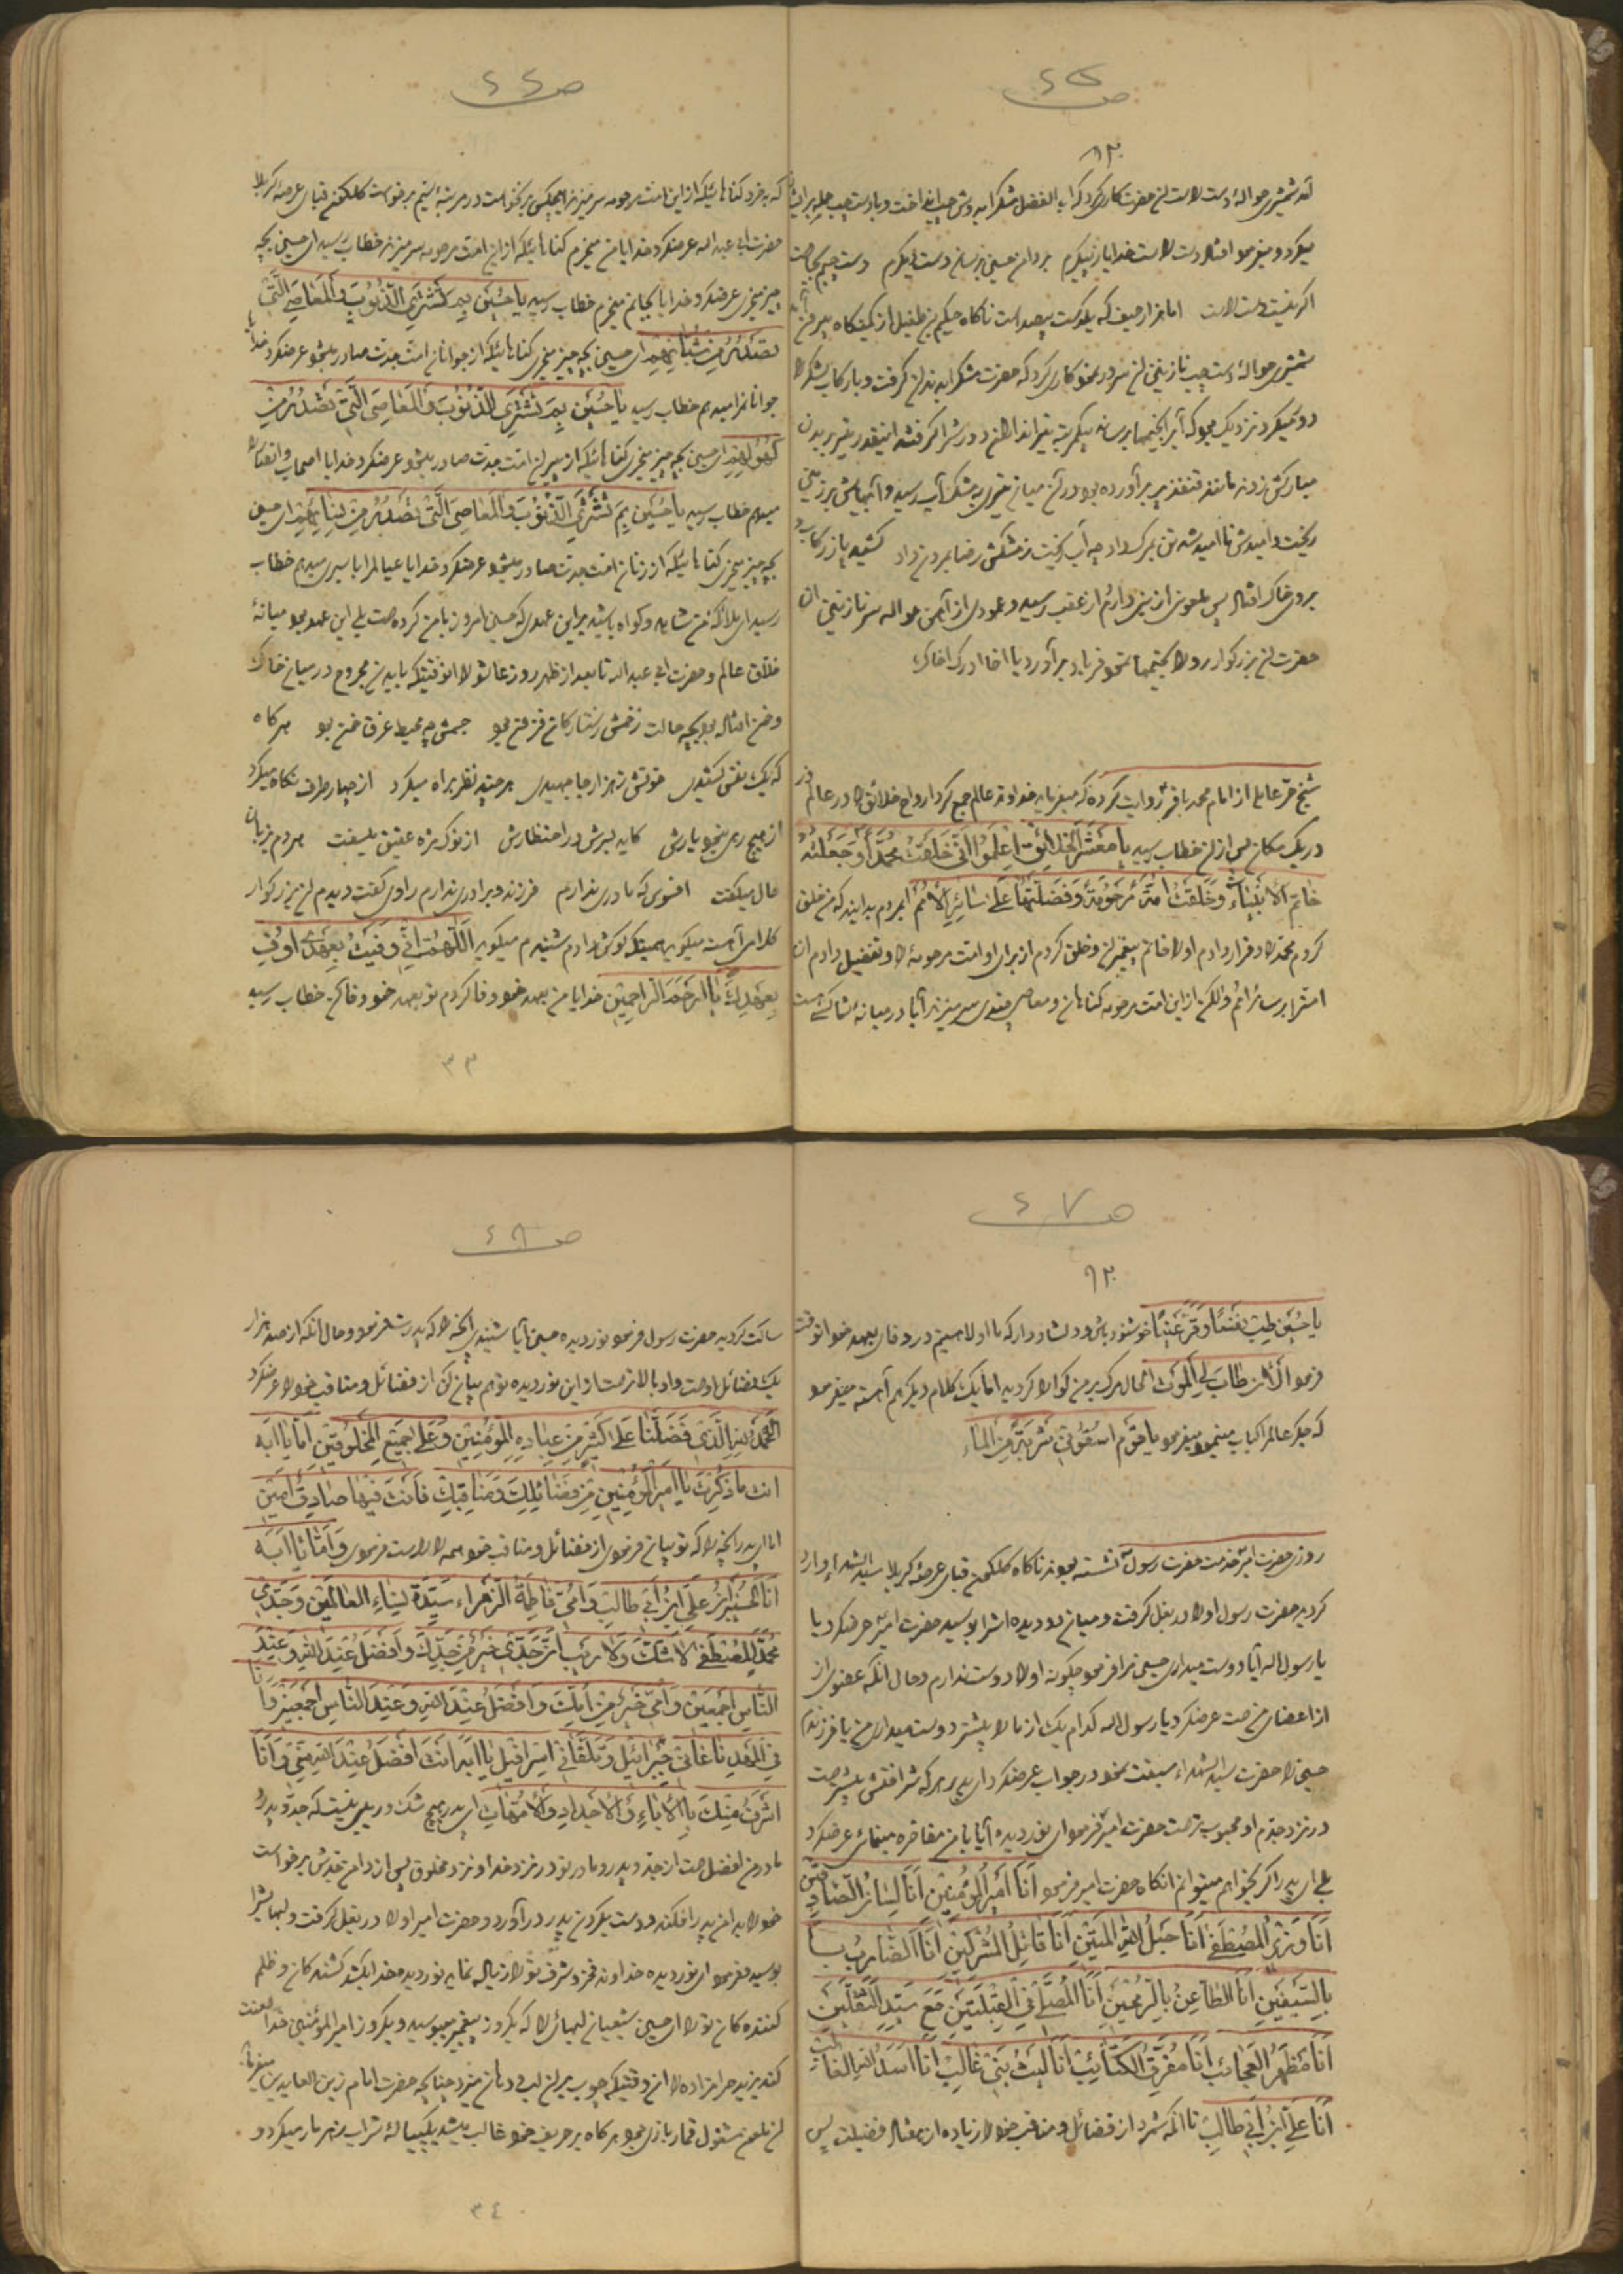 ص ٤٥
٩٢
حواله دست راست حضرت کاری کرد که ابوالفضل مشکرا بدوش چپ انداخت و با دست چپ حمله بر
میکرد و میفرمود افتاد دست راست خدایا ز پیکرم بر دامن حسین برسان دست دیگرم دست چپم بجاست
اگر نیست دست راست اما هزار حیف که یکدست بیصداست ناکاه حکیم بن طفیل از کمینکاه بیرون
شمشیری حواله دست چپ نازنین آن سرور نمود کاری کرد که حضرت مشکرا بدندان گرفت و با رکاب
نزدیک بود که آبرا بخیمها برساند یکمرتبه تیراندازان دورش را گرفتند اینقدر تیر بر بدن
مبارکش زدند مانند قنفذ پر برآورده بود در آن میان تیری بمشک آب رسید و آبها بر زمین
ریخت و امیدش ناامید شد تن بمرک داد چه آب ریخت ز مشکش رضا بمردن داد کشید پا ز رکاب و
بروی خاک افتاد پس ملعونی از بنی دارم از عقب رسید و عمودی از آهن حواله سر نازنین آن
حضرت آن بزرگوار رو را بخیمها نمود فریاد برآورد یا اخا ادرک اخاک
شیخ حر عاملی از امام محمد باقر روایت کرده که میفرماید خداوند عالم جمع کرد ارواح خلائق را در عالم ذر
در یک مکان پس از آن خطاب رسید یا مَعْشَرَ الْخَلائِقِ اِعْلَمُوا اَنّی خَلَقْتُ مُحَمَّداً وَجَعَلْتُهُ
خاتَمَ الْاَنْبِیاءِ وَخَلَقْتُ اُمَّةً مَرْحُومَةً وَفَضَّلْتُها عَلی سائِرِ الْاُمَمِ ایمردم بدانید که من خلق
کردم محمد را و قرار دادم او را خاتم پیغمبران و خلق کردم از برای او امت مرحومه را و تفضیل دادم آن
امترا بر سائر امم ولکن از این امت مرحومه کناهان و معاصی چندی سر میزند آیا در میانه شما کسی هست
ص ٤٦
که بخرد کناهائیکه از این امت مرحومه سر میزند هیچکس برنخواست در مرتبه سیم برخواست کلکون قبای عرصه کربلا
حضرت ابی عبدالله عرضکرد خدایا من میخرم کناهائیکه از این امت مرحومه سر میزند خطاب رسید ای حسین بچه
چیز میخری عرضکرد خدایا بجانم میخرم خطاب رسید یا حُسَیْن بِمَ تَشْتَرِی الذُّنُوبَ وَالْمَعاصِیَ الَّتی
تَصْدُرُ مِنْ شُبّانِهِمْ ای حسین بچه چیز میخری کناهائیکه از جوانان امت جدت صادر میشود عرضکرد خدایا
جوانانمرا میدهم خطاب رسید یا حُسَیْن بِمَ تَشْتَرِی الذُّنُوبَ وَالْمَعاصِیَ الَّتی تَصْدُرُ مِنْ
کُهُولِهِمْ ای حسین بچه چیز میخری کناهائیکه از پیران امت جدت صادر میشود عرضکرد خدایا اصحاب و انصارم را
میدهم خطاب رسید یا حُسَیْن بِمَ تَشْتَرِی الذُّنُوبَ وَالْمَعاصِیَ الَّتی تَصْدُرُ مِنْ نِسائِهِمْ ای حسین
بچه چیز میخری کناهائیکه از زنان امت جدت صادر میشود عرضکرد خدایا عیالم را باسیری میدهم خطاب
رسید ای ملائکه من شاهد و کواه باشید بر این عهدی که حسین امروز با من کرده است بلی این عهد بود میانه
خلاق عالم و حضرت ابی عبدالله تا بعد از ظهر روز عاشورا انوقتیکه با بدن مجروح در میان خاک
و خون افتاده بود بچه حالت زخمش ز ستارکان فزون بود جسمش چه محیط غرق خون بود هرکاه
که یک نفس کشیدی خونش ز هزار جا جهیدی هر چند نظر براه میکرد از چهار طرف نکاه میکرد
از هیچ رهی نبود یارش کاید بسرش در احتضارش از نوک نیزه عقیق میسفت هر دم بزبان
حال میکفت افسوس که مادری ندارم فرزند و برادری ندارم راوی کفت دیدم آن بزرکوار
کلامی آهسته میکوید همینکه کوش دادم شنیدم میکوید اَللّهُمَّ اِنّی وَفَیْتُ بِعَهْدی اَوْفِ
بِعَهْدِکَ یا اَرْحَمَ الرّاحِمین خدایا من بعهد خود وفا کردم تو بعهد خود وفا کن خطاب رسید
٣٣
ص ٤٧
٩٢
یا حُسَیْن طِبْ نَفْساً وَقَرَّ عَیْناً خوشنود باش و دلشاد دار که ما اولا هستیم در وفای بعهد خود انوقت
فرمود اَلْانَ طابَ لِیَ الْمَوْت الحال مرک بر من کوارا کردید اما یک کلام دیگر هم آهسته میفرمود
که جکر عالمرا کباب مینمود میفرمود یا قَوْمِ اسْقُونی شَرْبَةً مِنَ الْماءِ
روزی حضرت امیر خدمت حضرت رسول نشسته بودند ناکاه کلکون قبای عرصه کربلا سیدالشهداء وارد
کردید حضرت رسول او را در بغل کرفت و میان دو دیده اشرا بوسید حضرت امیر عرضکرد یا
یا رسول الله آیا دوست میداری حسین مرا فرمود چکونه او را دوست ندارم و حال انکه عضوی از
از اعضای من است عرضکرد یا رسول الله کدام یک از ما را بیشتر دوست میداری من یا فرزندم
حسین را حضرت سیدالشهداء سبقت نمود در جواب عرضکرد ای پدر هر که شرافتش بیشتر است
در نزد جدم او محبوب تر است حضرت امیر فرمود ای نوردیده آیا با من مفاخره مینمائی عرضکرد
بلی ای پدر اگر بخواهم میتوانم انکاه حضرت امیر فرمود اَنَا اَمیرُ الْمُؤْمِنینَ اَنَا لِسانُ الصّادِقینَ
اَنَا وَزیرُ الْمُصْطَفی اَنَا حَبْلُ اللهِ الْمَتینِ اَنَا قاتِلُ الْمُشْرِکینَ اَنَا الضّارِبُ
بِالسَّیْفَیْنِ اَنَا الطّاعِنُ بِالرُّمْحَیْنِ اَنَا الْمُصَلّی فِی الْقِبْلَتَیْنِ مَعَ سَیِّدِ الثَّقَلَیْنِ
اَنَا مَظْهَرُ الْعَجائِب اَنَا مُفَرِّقُ الْکَتائِب اَنَا لَیْثُ بَنی غالِب اَنَا اَسَدُ اللهِ الْغالِب
اَنَا عَلِیُّ ابْنُ اَبی طالِب تا آنکه شمرد از فضائل و مناقب خود را زیاده از هفتاد فضیلت پس
ص ٤٨
ساکت کردید حضرت رسول فرمود نوردیده حسین آیا شنیدی انچه را که پدرت فرمود و حال انکه از صد هزار
یک فضائل اوست و او بالاتر است از این نوردیده توهم بیان کن از فضائل و مناقب خود را عرضکرد
اَلْحَمْدُ لِلّهِ الَّذی فَضَّلَنا عَلی کَثیرٍ مِنْ عِبادِهِ الْمُؤْمِنینَ وَعَلی جَمیعِ الْمَخْلُوقین اَمّا یا اَبَه
انت ما ذَکَرْتَ یا اَمیرَ الْمُؤْمِنینَ مِنْ فَضائِلِکَ وَمَناقِبِکَ فَاَنْتَ فیها صادِقٌ اَمینٌ
اما ای پدر انچه را که تو بیان فرمودی از فضائل و مناقب خود همه را راست فرمودی وَاَمّا اَنَا یا اَبَه
اَنَا الْحُسَیْنُ ابْنُ عَلِیِّ ابْنِ اَبی طالِب وَاُمّی فاطِمَةُ الزَّهْراءِ سَیِّدَةُ نِساءِ الْعالَمین وَجَدّی
مُحَمَّدٌ الْمُصْطَفی لا شَکَّ وَلا رَیْبَ اَنَّ جَدّی خَیْرٌ مِنْ جَدِّکَ وَاَفْضَلُ عِنْدَ اللهِ وَعِنْدَ
النّاسِ اَجْمَعینَ وَاُمّی خَیْرٌ مِنْ اُمِّکَ وَاَفْضَلُ عِنْدَ اللهِ وَعِنْدَ النّاسِ اَجْمَعینَ وَاَنَا
فِی الْمَهْدِ ناغانی جَبْرائیلُ وَتَلَقّانی اِسْرافیلُ یا اَبَه اَنْتَ اَفْضَلُ عِنْدَ اللهِ مِنّی وَاَنَا
اَشْرَفُ مِنْکَ بِالْاباءِ وَالْاَجْدادِ وَالْاُمَّهاتِ ای پدر هیچ شک و ریبی نیست که جد و پدر و
مادر من افضل است از جد و پدر و مادر تو در نزد خدا و نزد مخلوق پس از دامن جدش برخواست
خود را بدامن پدر افکند و دست بگردن پدر درآورد و حضرت امیر او را در بغل کرفت و لبهایشرا
بوسید و فرمود ای نوردیده خداوند فخر و شرف تو را زیاد نماید نوردیده خدا بکشد کشندکان و ظلم
کنندهکان تو را ای حسین شیعیان لبهائیرا که یکروز پیغمبر میبوسید و یکروز امیرالمؤمنین خدا لعنت
کند یزید حرامزاده را از وقتیکه چوب بر آن لب و دندان میزد چنانچه حضرت امام زین العابدین میفرماید
آن ملعون مشغول قمار بازی بود هرکاه بر حریف خود غالب میشد یک پیاله شراب زهر مار میکرد و
٣٤